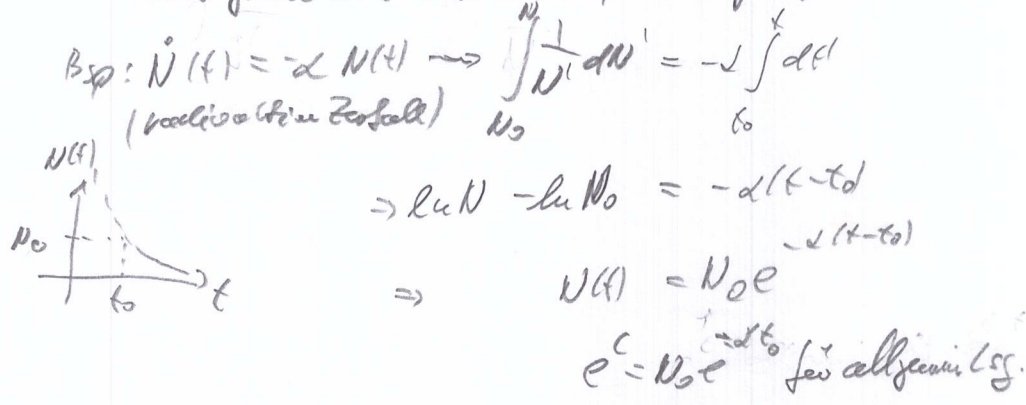 Bsp: Ṅ(t) = -α N(t) ⟿ ∫_{N₀}^{N} 1/N' dN' = -α ∫_{t₀}^{t} dt'
(radioaktiver Zerfall)
⇒ ln N - ln N₀ = -α(t-t₀)
N(t)
N₀
t₀
t
⇒ N(t) = N₀ e^{-α(t-t₀)}
e^C = N₀ e^{-αt₀} für allgemein Lsg.